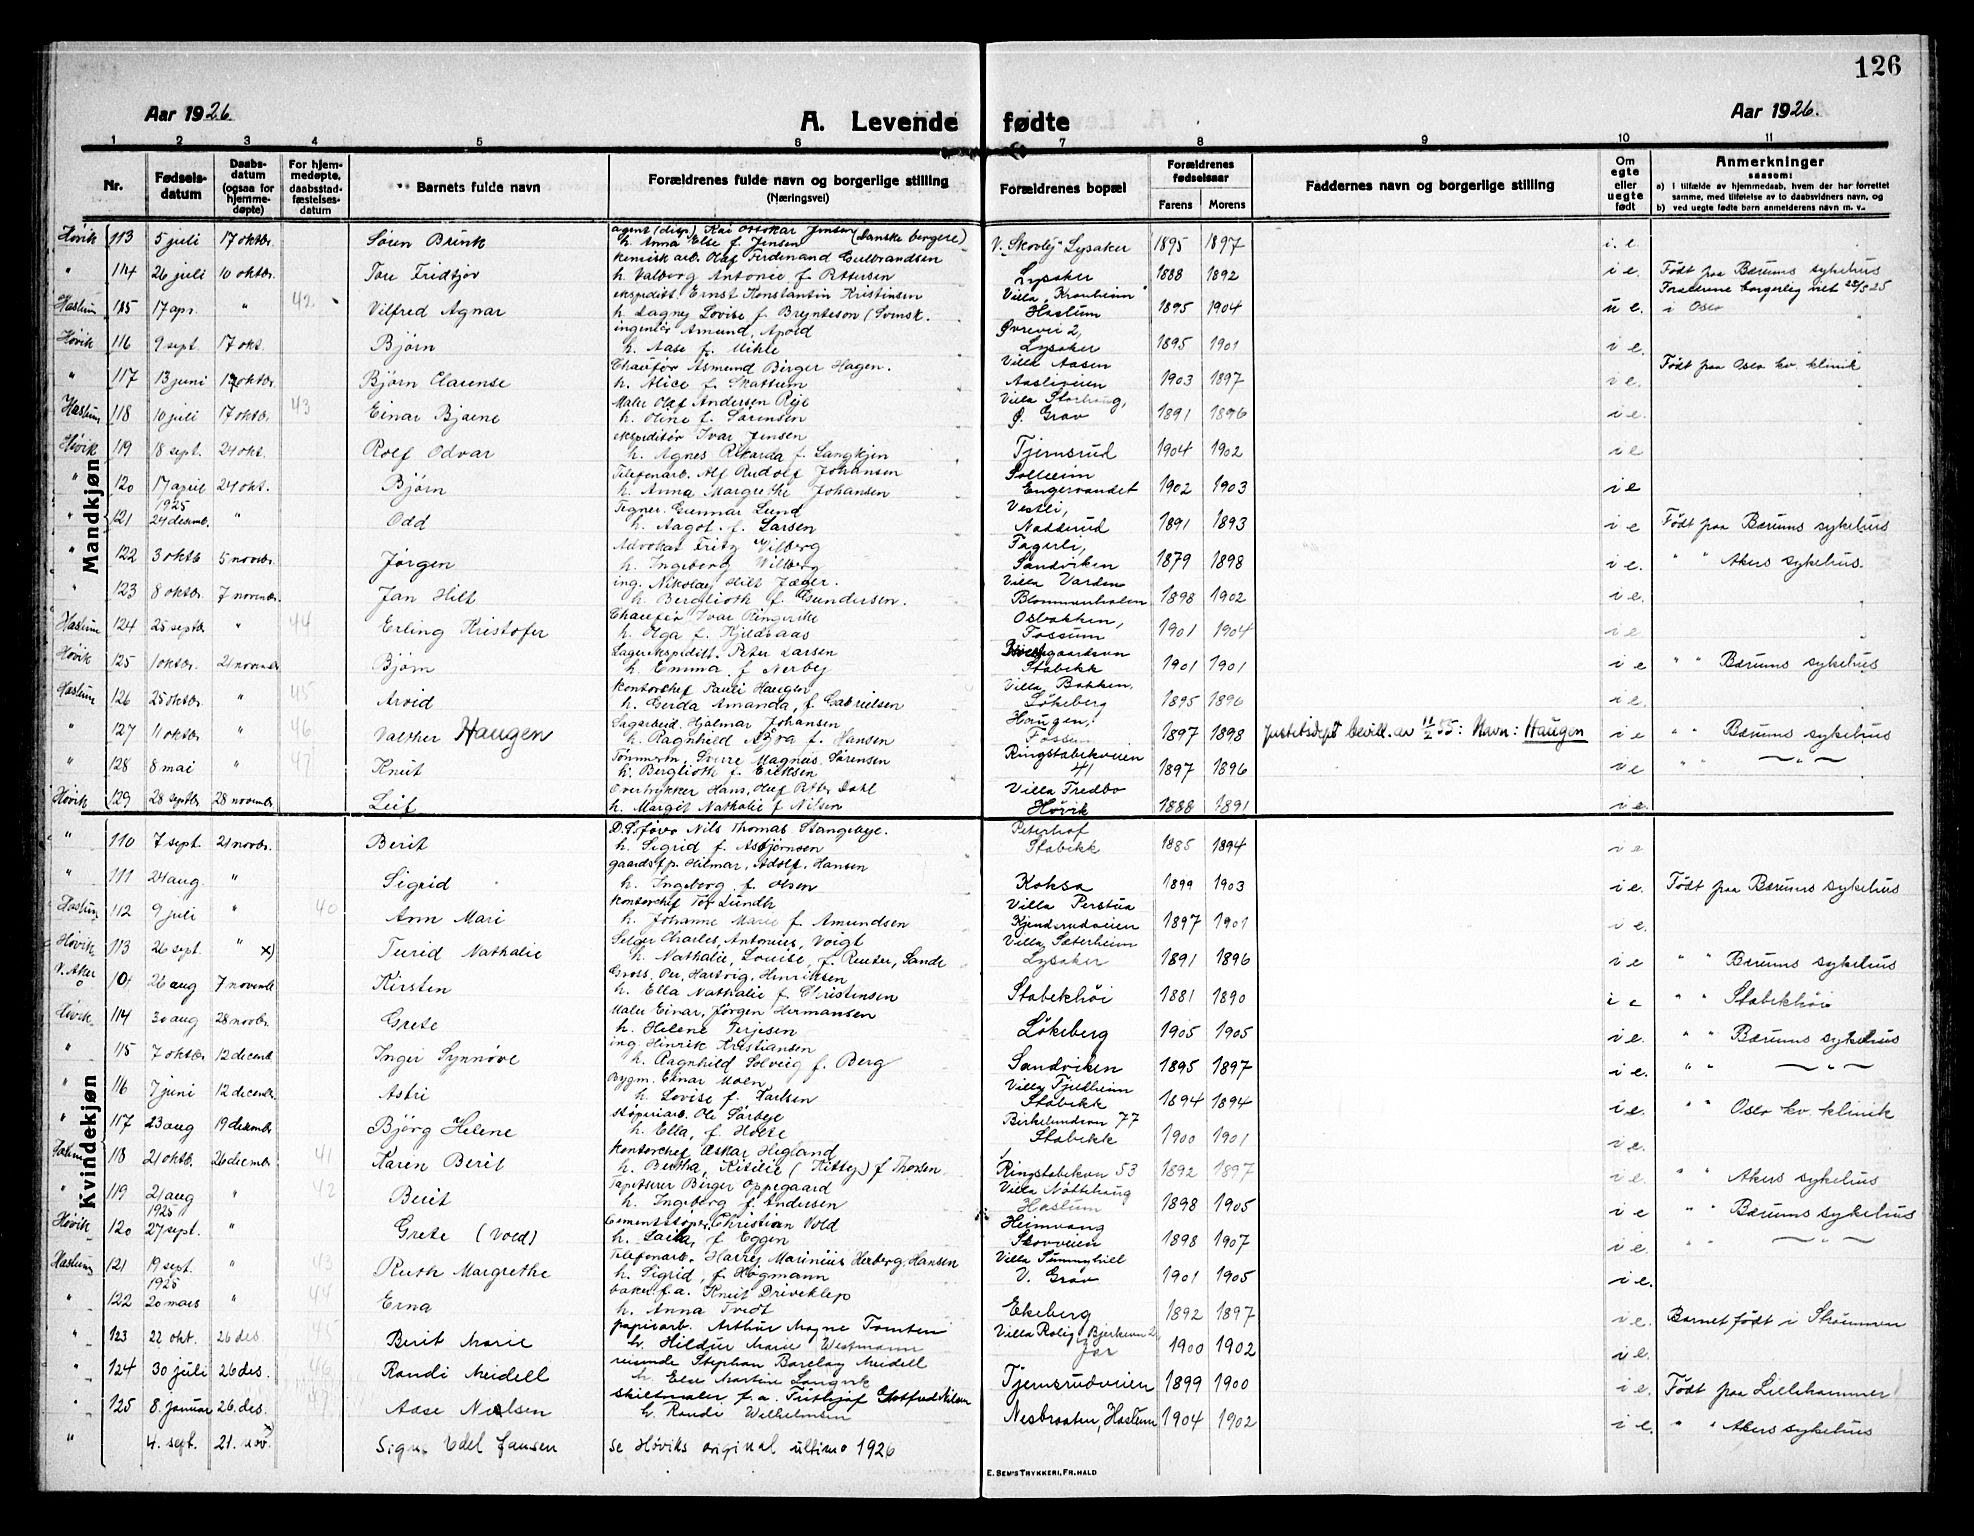 126
Aar 1926.
A. Levende fødte
Aar 1926.
1 2 3 4 5 6 7 8 9 10 11
Nr. Fødselsdatum Daabsdatum (ogsaa for hjemmedøpte) For hjemmedøpte, daabsstadfæstelsesdatum Barnets fulde navn Forældrenes fulde navn og borgerlige stilling (Næringsvei) Forældrenes bopæl Forældrenes fødselsaar Farens Morens Faddernes navn og borgerlige stilling Om egte eller uegte født Anmerkninger saasom: a) i tilfælde av hjemmedaab, hvem der har forrettet samme, med tilføielse av to daabsvidners navn, og b) ved uegte fødte børn anmelderens navn m. v.
Mandkjøn
Høvik 113 5 juli 17 oktbr. Søren Brink agent (disp) Kai Ottokar Jensen (danske borgere)
h. Anna Else f. Jensen V. "Skovlej" Lysaker 1895 1897 i e
" 114 26 juli 10 oktbr. Tore Fridtjov kemisk arb. Olaf Ferdinand Gulbrandsen
h. Valborg Antonie f. Pettersen Lysaker 1888 1892 i e. Født paa Bærums sykehus
Haslum 115 17 apr. " 42. Vilfred Agnar ekspeditt. Ernst Konstantin Kristinsen
h. Dagny Lovise f. Brynteson (Svensk. Villa "Kranheim" Haslum 1895 1904 u e. Forældrene borgerlig viet 28/3 25 i Oslo
Høvik 116 9 sept. 17 okt. Bjørn ingeniør Amund, Apold
h. Aase f. Mihle Øvrevei 2, Lysaker 1895 1901 i e.
" 117 13 juni 17 oktbr Bjørn Clarense Chaufför Asmund Birger Hagen.
h. Alice f. Skattum Villa Aasen Aasliveien 1903 1897 i e. Født paa Oslo kv. klinik
Haslum 118 10 juli 17 oktbr. 43 Einar Bjarne Maler Olaf Andersen Reje
h. Oline f. Sørensen Villa Storhaug, Ø. Grav 1891 1896 i e.
Høvik 119 18 sept. 24 okt. Rolf Odvar ekspeditør Ivar Jensen
h. Agnes Rikarda f. Langkjen Tjernsrud 1904 1902 i e
" 120 17 april 24 okt. Bjørn Telefonarb. Alf Rudolf Johansen
h. Anna Margrethe Johansen Solheim Engervandet 1902 1903 i e
" 121 1925 24 desemb. " Odd Tegner. Gunnar Lund
h. Aagot. f. Larsen Vestli, Nadderud 1891 1893 i e Født paa Bærums sykehus
" 122 3 oktb 5 novbr. Jørgen Advokat Fritz Vilberg
h. Ingeborg Wilberg Fagerli, Sandviken 1879 1898 i e. " " Akers sykehus.
" 123 8 oktbr. 7 novembr. Jan Hilt ing. Nikolay Hilt Jæger.
h. Berglioth f. Gundersen. Villa Varden Blommenholm 1898 1902 i e.
Haslum 124 25 septbr " 44 Erling Kristofer Chaufför Ivar Ringerike
h. Olga f. Kjeldsaas Osbakken, Fossum 1901 1904 i e.
Høvik 125 1 oktbr. 21 novembr Bjørn Lagerekspeditt. Peter Larsen
h. Emma f. Nerbej Stabekk 1901 1901 i e " " Bærums sykehus
Haslum 126 25 oktbr. " 45 Arvid Kontorchef Pauli Haugler
h. Gerda Amanda, f. Gabrielsen Villa Bakken, Løkeberg 1895 1896 i e.
" 127 11 oktbr " 46 Valther Haugen Sagarbeid. Hjalmar Johansen
h. Ragnhild f. Hansen Haugen, Fossum 1897 1898 justisdept bevill. av 11/2 55: Navn: Haugen i e " " Bærums sykehus
" 128 8 mai " 47 Knut Tömmerm. Sverre Magnus Sørensen
h. Bergliotk f. Eriksen Ringstabekveien 41 1897 1896 i e " " — " —
Høvik 129 28 septbr 28 novembr Leif Overtrykker Hans, Oluf Petter Dahl
h. Margit Nathalie f Nilsen Villa Fredbo Høvik 1888 1891 i e.
Kvindekjøn
" 110 7 sept. 21 novbr. Berit D.S.fører Nils Thomas Stangebye.
h. Sigrid f. Asbjørnsen Peterhof Stabekk 1885 1894 i e
" 111 24 aug. " Sigrid gaardsfp. Hilmar, Adolf. Hansen
h. Ingeborg f. Olsen Koksa 1899 1903 i e. Født paa Bærums sykehus
Haslum 112 9 juli " 40 Ann Mari Kontorchef Tor Lundh
h. Johanne Marie f. Amundsen Villa Perstua Kjendsrudveien 1897 1901 i e.
Høvik 113 26 sept. " x) Turid Nathalie Selger Charles, Antonius, Voigt
h. Nathalie, Louise, f. Reuter, Sande Villa, Sæterheim Lysaker 1891 1896 i e " " Bærums sykehus
V. Aker 10 26 aug 7 novemb Kirsten Gross. Per, Hartvig. Henriksen
h. Ella Nathalie f. Christensen Stabekhøi 1881 1890 i e " " Stabekhøi
Høvik. 114 30 aug 28 novbr. Grete Maler Einar, Jørgen Hermansen
h. Helene Terjesen Løkeberg 1905 1905 i e. " " Bærums sykehus
" 115 7 oktbr 12 decemb Inger Synnøve ing Hinrik Kristiansen
h. Ragnhild Solveig f. Berg Sandviken 1895 1897 i e. " " — " —
" 116 7 juni 12 decembr. Astri bygm. Einar Moen
h. Lovise f. Karlsen Villa Fjeldheim Stabekk 1894 1894 i e. " " Oslo kv. klinik
" 117 23 aug 19 desembr Bjørg Helene støperiarb. Ole Sørbye
h. Ella, f. Holte Birkelundsvn 77 Stabekk 1900 1901 i e.
Haslum 118 21 oktb. 26 decembr 41 Karen Berit Kontorchef Oskar Higland
h. Bertha, Kitilie (Kitty) f Thorsen. Ringstabekvn 53 1892 1897 i e. " " Akers sykehus
" 119 21 aug " 42 Berit Tapetserer Birger Oppegaard
h. Ingeborg f. Andersen Villa Nøttehaug Haslum 1898 1905 i e " " Bærums sykehus
Høvik 120 1925 27 sept. " Grete (Vold) Cementstøper, Christian Vold
h. Laila, f Eggen Heimvang Skovveien 1898 1907 i e. " " — " —
Haslum 121 19 sept. " 43 Ruth Margrethe Telefonarb. Harry Marinius Herberg, Hansen
h. Sigrid, f. Høgmann Villa Sunnyhill V. Grav 1901 1905 i e.
" 122 1925 20 mars " 44 Erna baker f. a. Knut Driveklep
h. Anna Tvedt Ekeberg 1892 1897 i e. Barnet født i Strømmen
" 123 22 okt. 26 des. 45 Berit Marie papirarb. Arthur Magne Tomten
h. Hildur Marie Westmann Villa Rolig, Bjerkevn 2 Jar 1900 1902 i e.
" 124 30 juli 26 des. 46 Randi Meidell reisende Stephan Barclay Meidell
h. Else Martine Langvik Tjernsrudveien 1899 1900 i e. Født paa Lillehammer
" 125 8. januar 26. des. 47 Aase Nielsen skiltmaler f. a. Fridthjof Gottfred Nilsen
h. Randi Wilhelmsen Nesbraaten, Haslum 1904 1902 i e. " " Akers sykehus
" 4. sept. 21. nov. x Signe Edel Jansen Se Høviks original ultimo 1926
E. SEM'S TRYKKERI, FR.HALD